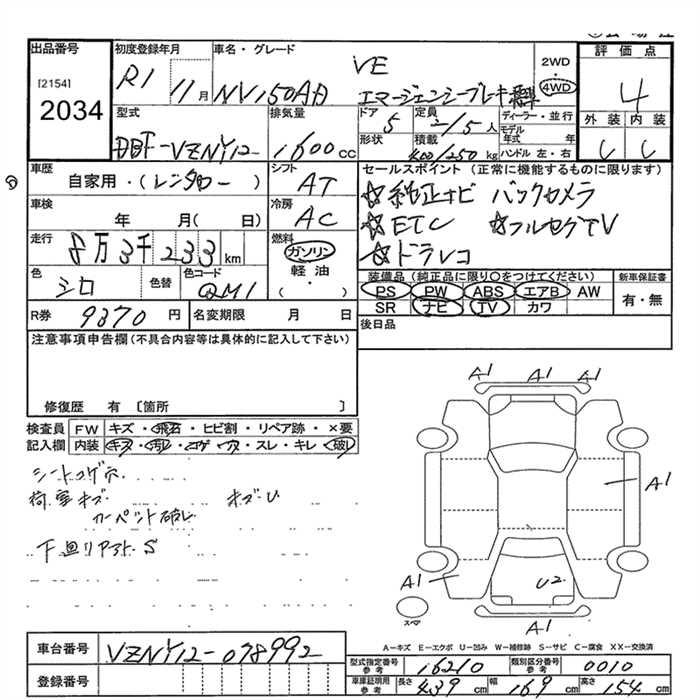 出品番号
[2154]
2034
初度登録年月
R1 11月
車名・グレード
NV150AD VE
エマージェンシーブレーキ
2WD
・
4WD
評価点
4
外装 内装
型式
DBF-VZNY12-
排気量
1600cc
ドア
5
定員
2/5人
ディーラー・並行
モデル
年式 年
形状
積載
400/250kg
ハンドル 左・右
車歴
自家用・(レンタカー)
シフト
AT
セールスポイント(正常に機能するものに限ります)
☆純正ナビ バックカメラ
☆ETC ☆フルセグTV
☆ドラレコ
車検
年 月(日)
冷房
AC
走行
8万3千233km
燃料
ガソリン
軽油
(・)
色
シロ
色替
色コード
QM1
装備品(純正品に限り○をつけてください)
PS PW ABS エアB AW
SR ナビ TV カワ
新車保証書
有・無
R券 9370円
名変期限 月 日
後日品
注意事項申告欄(不具合内容等は具体的に記入して下さい)
修復歴 有〔箇所 〕
検査員 FW キズ・飛石・ヒビ割・リペア跡・×要
記入欄 内装 キズ・汚レ・コゲ・穴・スレ・キレ・破レ
シートコゲ穴
荷室キズ・ キズ・U
カーペット破レ
下回リアフト・S
A1 A1 A1
A1
A1 U2
A1
スペア
A-キズ E-エクボ U-凹み W-補修跡 S-サビ C-腐食 XX-交換済
車台番号 VZNY12-078992
登録番号
型式指定番号
参考
16210
類別区分番号
参考
0010
車庫証明用
参考
長さ 439cm 幅 169cm 高さ 154cm